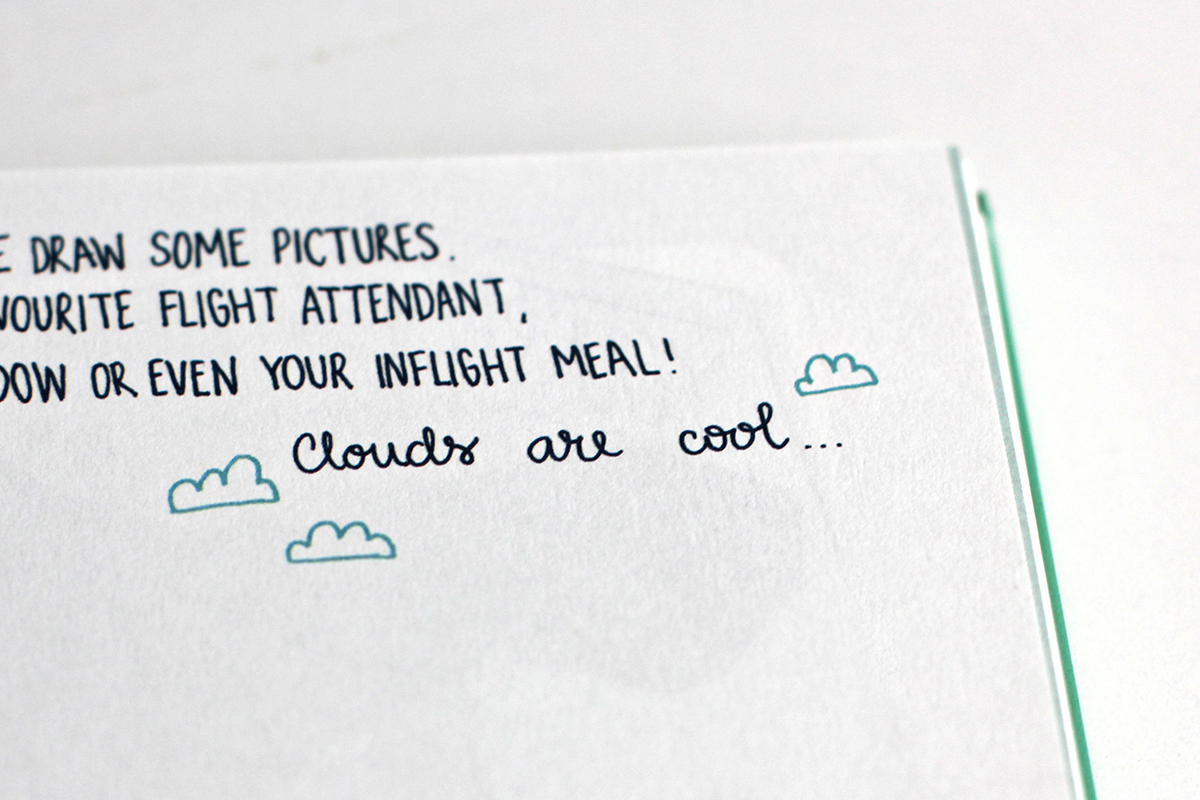 E DRAW SOME PICTURES.
VOURITE FLIGHT ATTENDANT,
DOW OR EVEN YOUR INFLIGHT MEAL!
Clouds are cool...